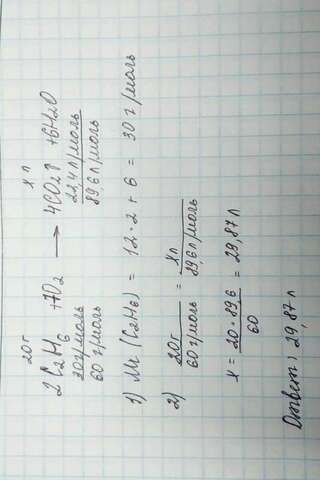 20г x л
2C₂H₆ +7O₂ → 4CO₂↑ +6H₂O
30г/моль 22,4 л/моль
60 г/моль 89,6 л/моль
1) Mr (C₂H₆) = 12·2 + 6 = 30 г/моль
2) 20г/60 г/моль = x л/89,6 л/моль
x = 20·89,6/60 = 29,87 л
Ответ: 29,87 л